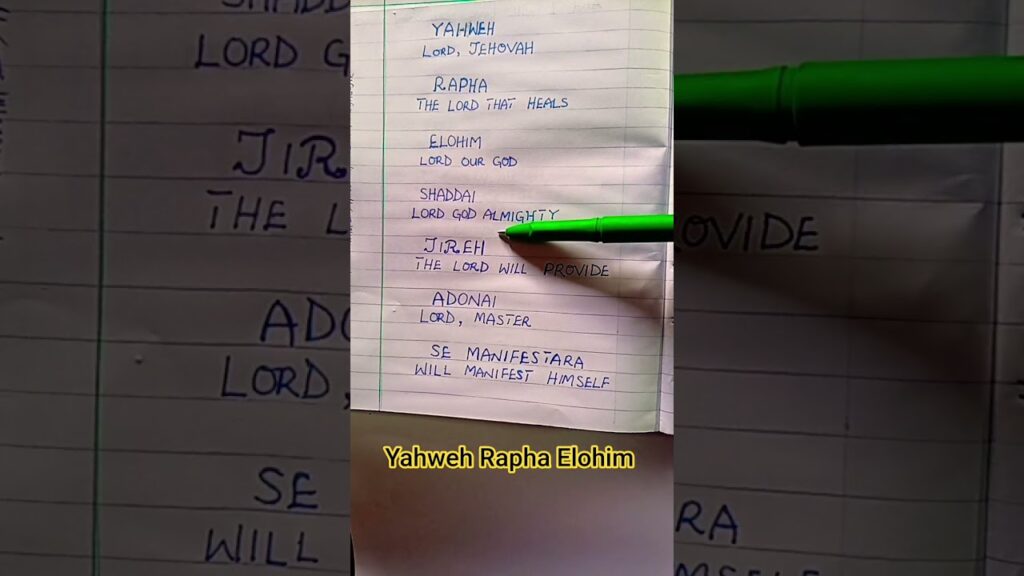 YAHWEH
LORD, JEHOVAH
RAPHA
THE LORD THAT HEALS
ELOHIM
LORD OUR GOD
SHADDAI
LORD GOD ALMIGHTY
JIREH
THE LORD WILL PROVIDE
ADONAI
LORD, MASTER
SE MANIFESTARA
WILL MANIFEST HIMSELF
Yahweh Rapha Elohim